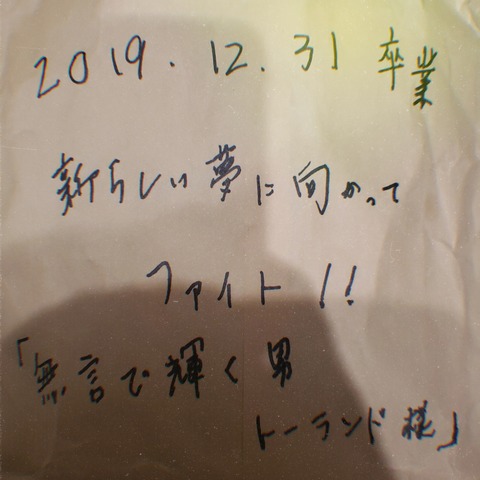 2019.12.31 卒業
新らしい夢に向かって
ファイト!!
「無言で輝く男
トーランド様」